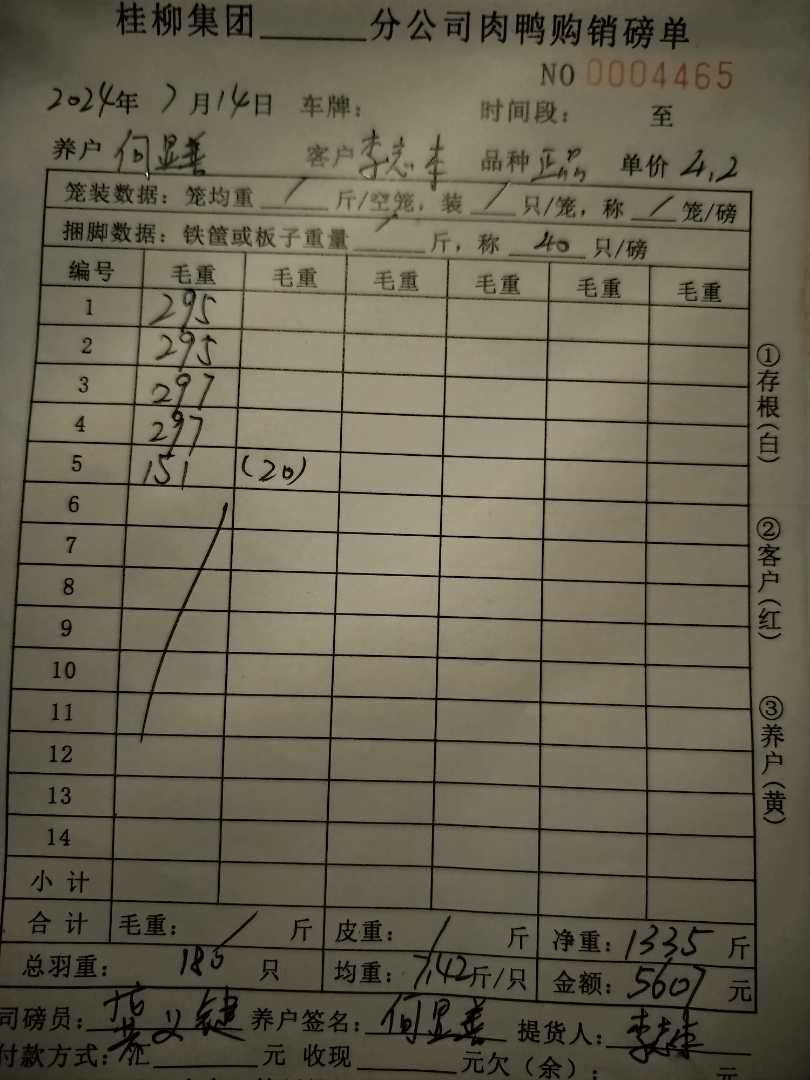 桂柳集团______分公司肉鸭购销磅单
NO 0004465
2024年 7月14日 车牌： 时间段： 至
养户 何显善 客户 李志丰 品种 正品 单价 4.2
笼装数据：笼均重 / 斤/空笼，装 / 只/笼，称 / 笼/磅
捆脚数据：铁筐或板子重量 / 斤，称 40 只/磅
编号 毛重 毛重 毛重 毛重 毛重 毛重
1 295
2 295
3 297
4 297
5 151 (20)
6
7
8
9
10
11
12
13
14
小计
合计 毛重： / 斤 皮重： / 斤 净重：1335 斤
总羽重： 180 只 均重：7.42斤/只 金额：5607 元
司磅员： 养户签名：何显善 提货人：李志丰
付款方式： ______元 收现______元欠（余）： 元
①存根（白）
②客户（红）
③养户（黄）